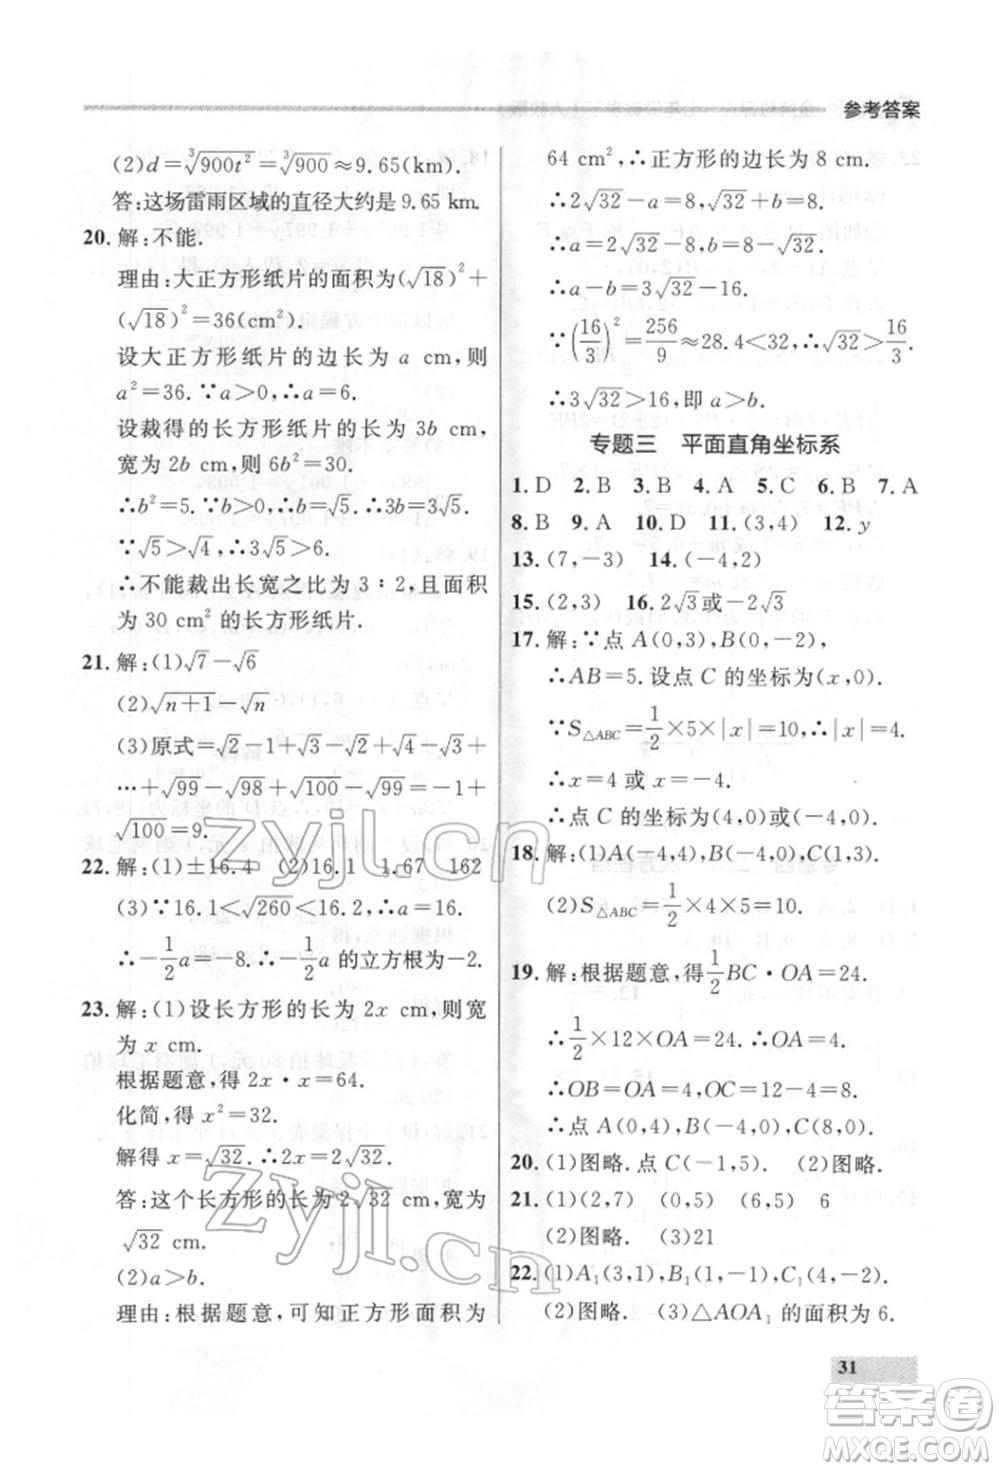 参考答案
(2)d=∛900t²=∛900≈9.65(km).
答:这场雷雨区域的直径大约是 9.65 km.
20. 解:不能.
理由:大正方形纸片的面积为(√18)²+
(√18)²=36(cm²).
设大正方形纸片的边长为 a cm,则
a²=36.∵a>0,∴a=6.
设裁得的长方形纸片的长为 3b cm,
宽为 2b cm,则 6b²=30.
∴b²=5.∵b>0,∴b=√5.∴3b=3√5.
∵√5>√4,∴3√5>6.
∴不能裁出长宽之比为 3∶2,且面积
为 30 cm² 的长方形纸片.
21. 解:(1)√7-√6
(2)√n+1-√n
(3)原式=√2-1+√3-√2+√4-√3+…
+√99-√98+√100-√99=-1+
√100=9.
22. 解:(1)±16.4 (2)16.1 1.67 162
(3)∵16.1<√260<16.2,∴a=16.
∴-1/2a=-8.∴-1/2a 的立方根为-2.
23. 解:(1)设长方形的长为 2x cm,则宽
为 x cm.
根据题意,得 2x·x=64.
化简,得 x²=32.
解得 x=√32.∴2x=2√32.
答:这个长方形的长为2√32 cm,宽为
√32 cm.
(2)a>b.
理由:根据题意,可知正方形面积为
64 cm²,∴正方形的边长为 8 cm.
∴2√32-a=8,√32-b=8.
∴a=2√32-8,b=8-√32.
∴a-b=3√32-16.
∵(16/3)²=256/9≈28.4<32,∴√32>16/3.
∴3√32>16,即 a>b.
专题三 平面直角坐标系
1. D 2. B 3. B 4. A 5. C 6. B 7. A
8. B 9. A 10. D 11. (3,4) 12. y
13. (7,-3) 14. (-4,2)
15. (2,3) 16. 2√3或-2√3
17. 解:∵点 A(0,3),B(0,-2),
∴AB=5. 设点 C 的坐标为(x,0).
∵S△ABC=1/2×5×|x|=10,∴|x|=4.
∴x=4 或 x=-4.
∴点 C 的坐标为(4,0)或(-4,0).
18. 解:(1)A(-4,4),B(-4,0),C(1,3).
(2)S△ABC=1/2×4×5=10.
19. 解:根据题意,得1/2BC·OA=24.
∴1/2×12×OA=24.∴OA=4.
∴OB=OA=4,OC=12-4=8.
∴点 A(0,4),B(-4,0),C(8,0).
20. (1)图略. 点 C(-1,5). (2)图略.
21. (1)(2,7) (0,5) (6,5) 6
(2)图略. (3)21
22. (1)A₁(3,1),B₁(0,-1),C₁(1,2)
(2)图略. (3)△AOA₁ 的面积为 6.
31
zyjl.cn
zyjl.cn
答案圈
MXQE.COM